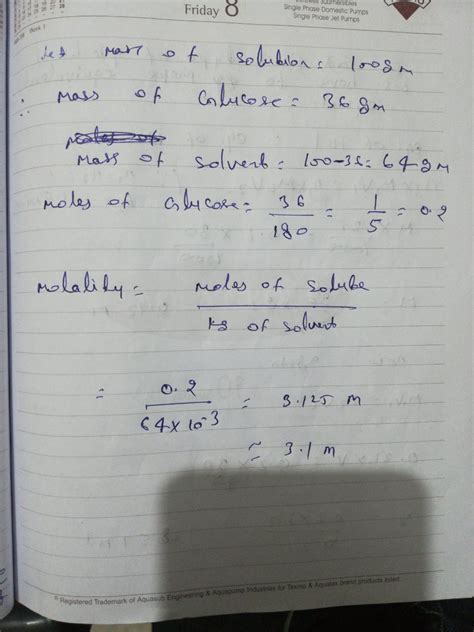 Friday 8
Submersibles
Single Phase Domestic Pumps
Single Phase Jet Pumps
Let Mass of Solution = 100gm
∴ Mass of Glucose = 36gm
Moles of
Mass of Solvent = 100-36 = 64gm
Moles of Glucose = 36/180 = 1/5 = 0.2
Molality = Moles of Solute / kg of Solvent
= 0.2 / 64×10⁻³ = 3.125 m
≈ 3.1 m
® Registered Trademark of Aquasub Engineering & Aquapump Industries for Texmo & Aqualex brand products listed